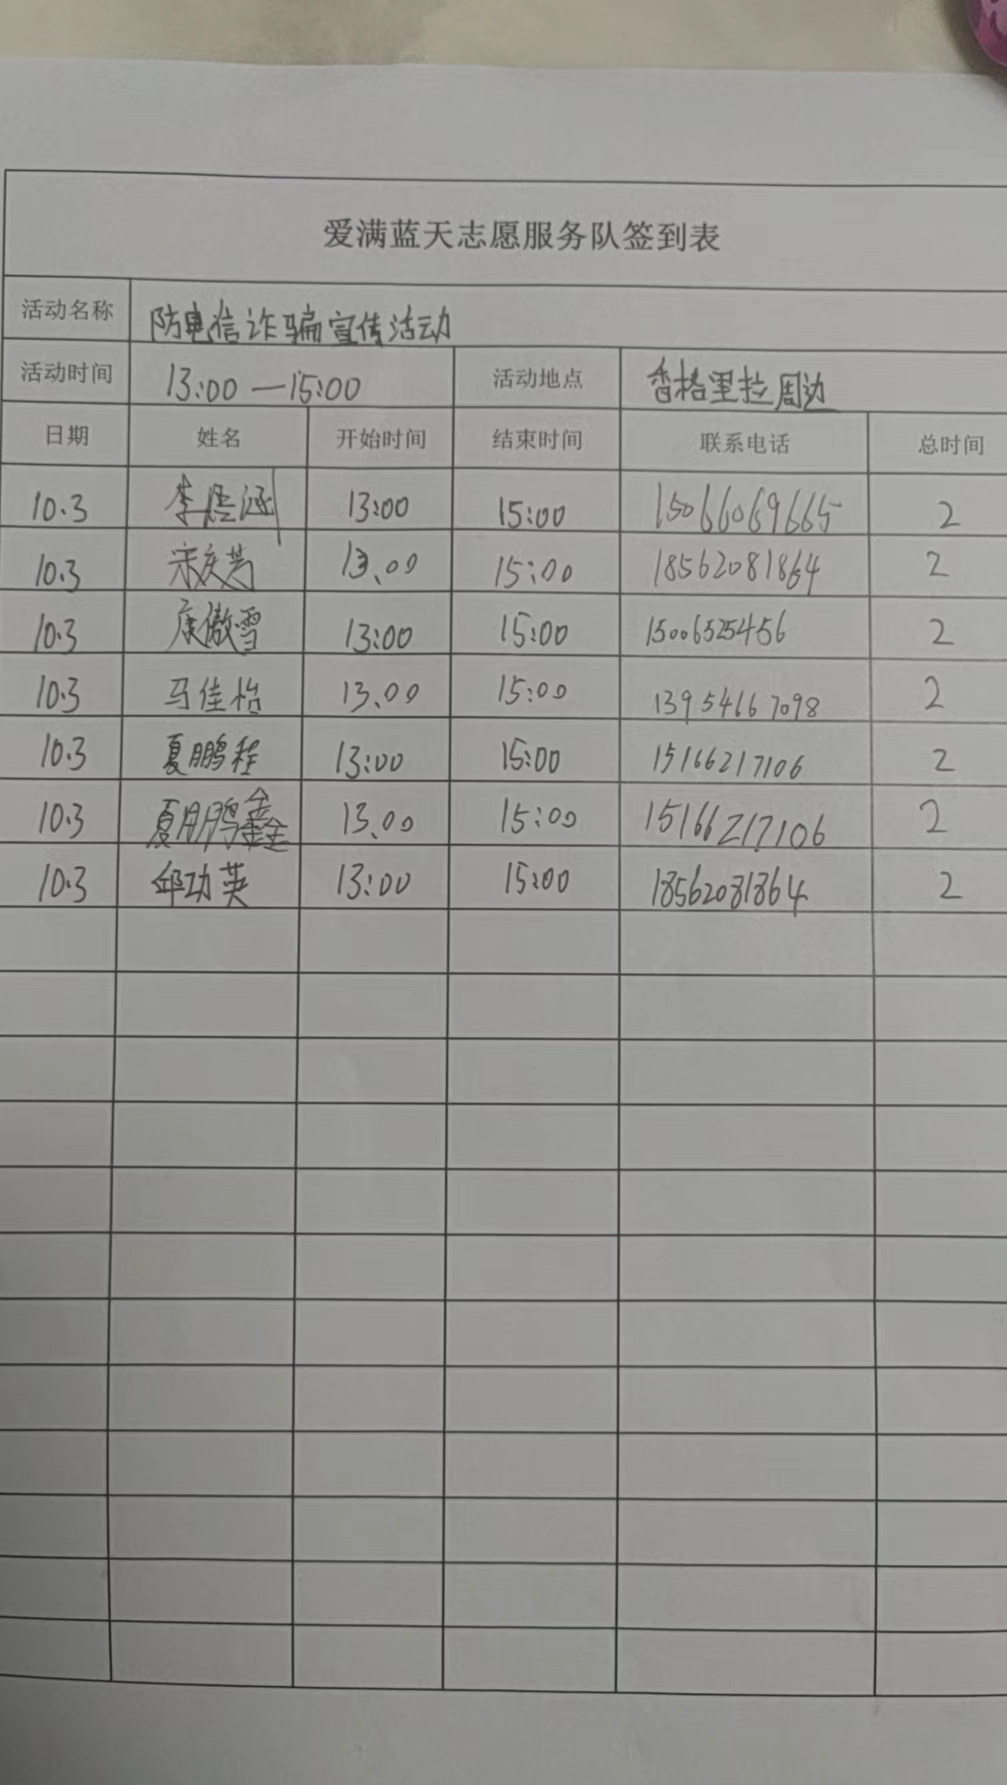 爱满蓝天志愿服务队签到表
活动名称 防电信诈骗宣传活动
活动时间 13:00—15:00 活动地点 香格里拉周边
日期 姓名 开始时间 结束时间 联系电话 总时间
10.3 李煜涵 13:00 15:00 15066069665 2
10.3 宋庆芳 13.00 15:00 18562081864 2
10.3 康傲雪 13:00 15:00 15006525456 2
10.3 马佳怡 13.00 15:00 13954667098 2
10.3 夏鹏程 13:00 15:00 15166217106 2
10.3 夏鹏鑫 13.00 15:00 15166217106 2
10.3 邱功英 13:00 15:00 18562081864 2